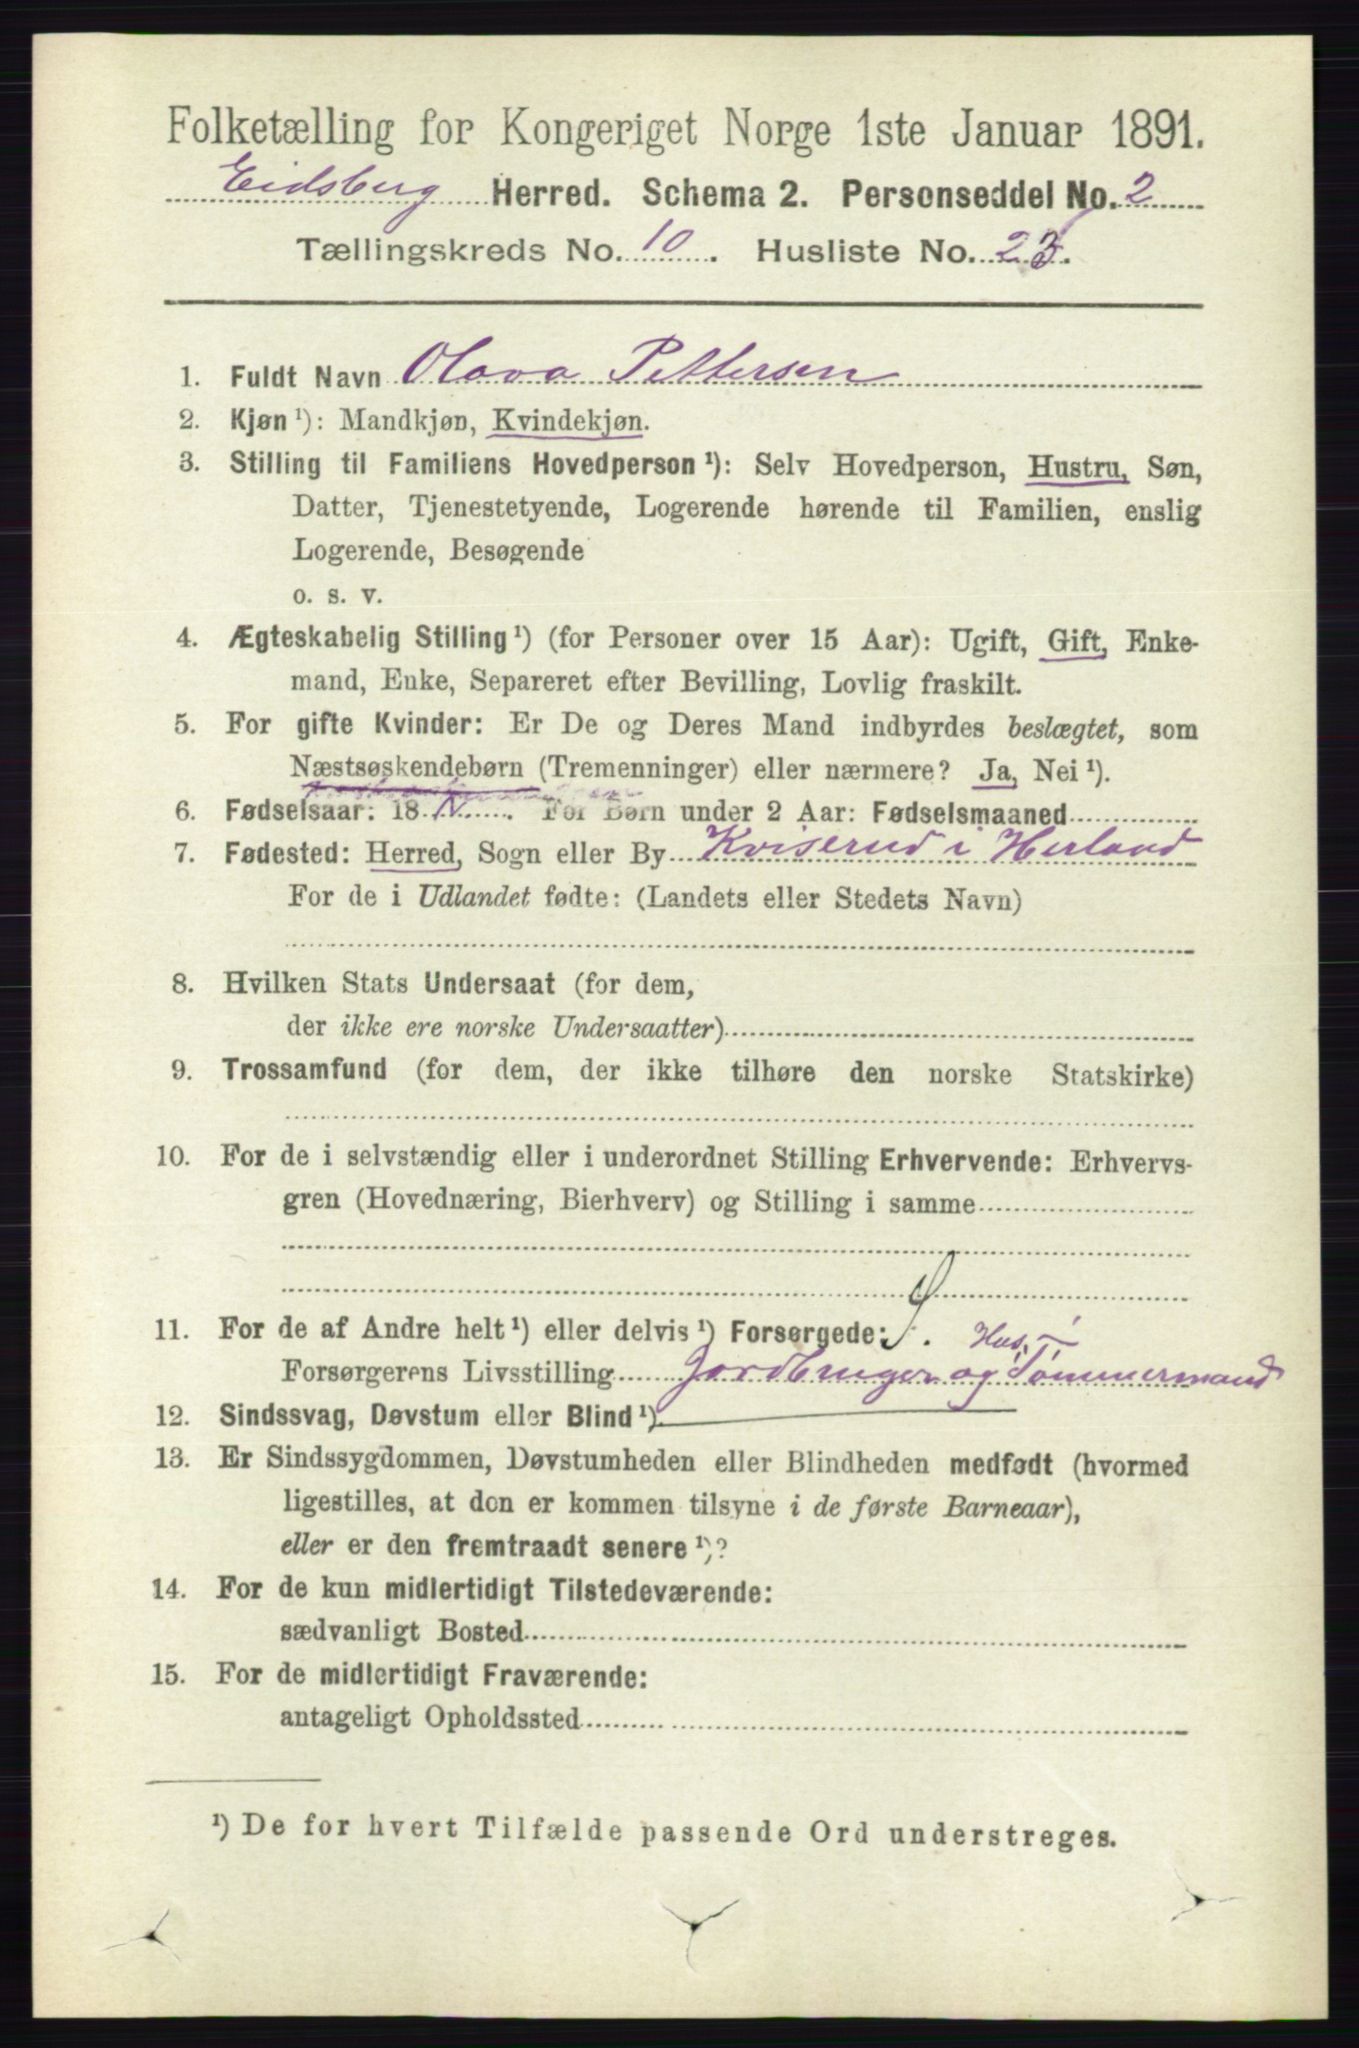 Folketælling for Kongeriget Norge 1ste Januar 1891.
Eidsberg Herred. Schema 2. Personseddel No. 2
Tællingskreds No. 10. Husliste No. 23.
1. Fuldt Navn Olava Pettersen
2. Kjøn ¹): Mandkjøn, Kvindekjøn.
3. Stilling til Familiens Hovedperson ¹): Selv Hovedperson, Hustru, Søn,
Datter, Tjenestetyende, Logerende hørende til Familien, enslig
Logerende, Besøgende
o. s. v.
4. Ægteskabelig Stilling ¹) (for Personer over 15 Aar): Ugift, Gift, Enke-
mand, Enke, Separeret efter Bevilling, Lovlig fraskilt.
5. For gifte Kvinder: Er De og Deres Mand indbyrdes beslægtet, som
Næstsøskendebørn (Tremenninger) eller nærmere? Ja, Nei ¹).
6. Fødselsaar: 18 For Børn under 2 Aar: Fødselsmaaned
7. Fødested: Herred, Sogn eller By Kviserud i Herland
For de i Udlandet fødte: (Landets eller Stedets Navn)
8. Hvilken Stats Undersaat (for dem,
der ikke ere norske Undersaatter)
9. Trossamfund (for dem, der ikke tilhøre den norske Statskirke)
10. For de i selvstændig eller i underordnet Stilling Erhvervende: Erhvervs-
gren (Hovednæring, Bierhverv) og Stilling i samme
11. For de af Andre helt ¹) eller delvis ¹) Forsørgede: Hus-
Forsørgerens Livsstilling Jordbruger og Tømmermand
12. Sindssvag, Døvstum eller Blind ¹).
13. Er Sindssygdommen, Døvstumheden eller Blindheden medfødt (hvormed
ligestilles, at den er kommen tilsyne i de første Barneaar),
eller er den fremtraadt senere ¹)?
14. For de kun midlertidigt Tilstedeværende:
sædvanligt Bosted
15. For de midlertidigt Fraværende:
antageligt Opholdssted
¹) De for hvert Tilfælde passende Ord understreges.